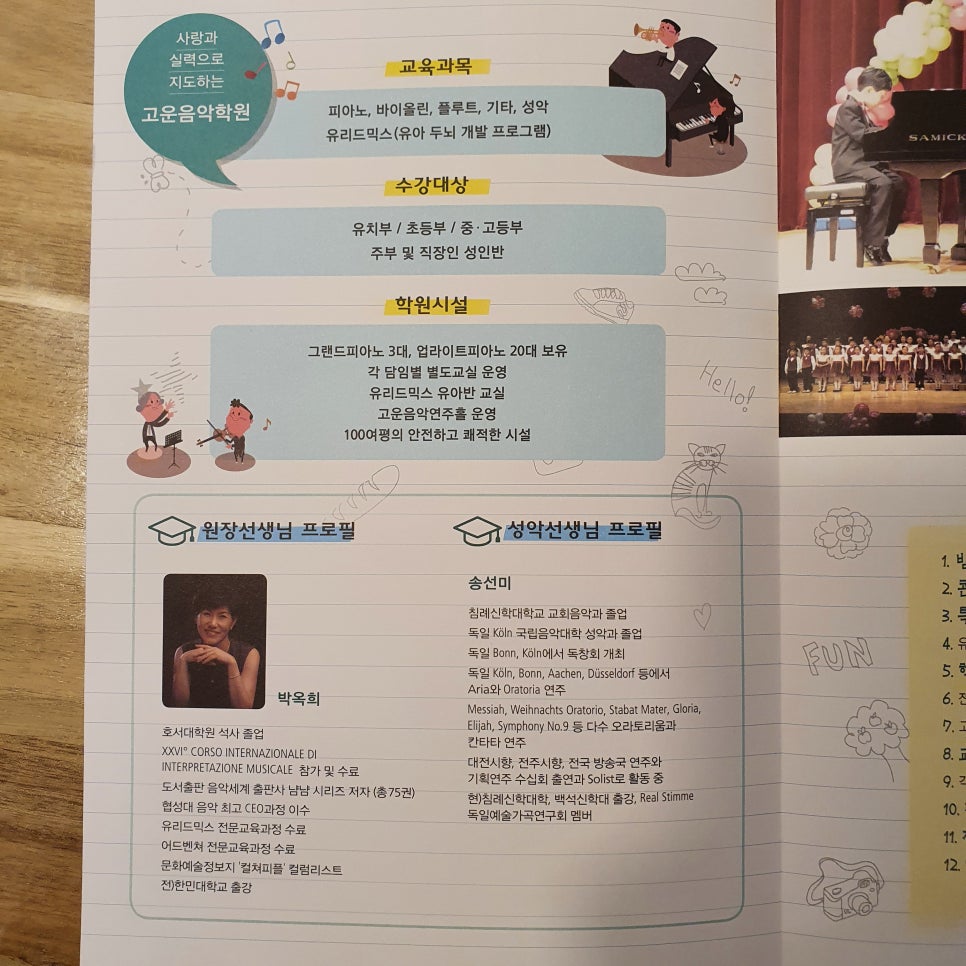 사랑과
실력으로
지도하는
고운음악학원
교육과목
피아노, 바이올린, 플루트, 기타, 성악
유리드믹스(유아 두뇌 개발 프로그램)
수강대상
유치부 / 초등부 / 중·고등부
주부 및 직장인 성인반
학원시설
그랜드피아노 3대, 업라이트피아노 20대 보유
각 담임별 별도교실 운영
유리드믹스 유아반 교실
고운음악연주홀 운영
100여평의 안전하고 쾌적한 시설
원장선생님 프로필
박옥희
호서대학원 석사 졸업
XXVI° CORSO INTERNAZIONALE DI
INTERPRETAZIONE MUSICALE 참가 및 수료
도서출판 음악세계 출판사 냠냠 시리즈 저자 (총75권)
협성대 음악 최고 CEO과정 이수
유리드믹스 전문교육과정 수료
어드벤쳐 전문교육과정 수료
문화예술정보지 '컬쳐피플' 컬럼리스트
전)한민대학교 출강
성악선생님 프로필
송선미
침례신학대학교 교회음악과 졸업
독일 Köln 국립음악대학 성악과 졸업
독일 Bonn, Köln에서 독창회 개최
독일 Köln, Bonn, Aachen, Düsseldorf 등에서
Aria와 Oratoria 연주
Messiah, Weihnachts Oratorio, Stabat Mater, Gloria,
Elijah, Symphony No.9 등 다수 오라토리움과
칸타타 연주
대전시향, 전주시향, 전국 방송국 연주와
기획연주 수십회 출연과 Solist로 활동 중
현)침례신학대학, 백석신학대 출강, Real Stimme
독일예술가곡연구회 멤버
Hello!
SAMICK
FUN
1.
2.
3.
4.
5.
6.
7.
8.
9.
10.
11.
12.